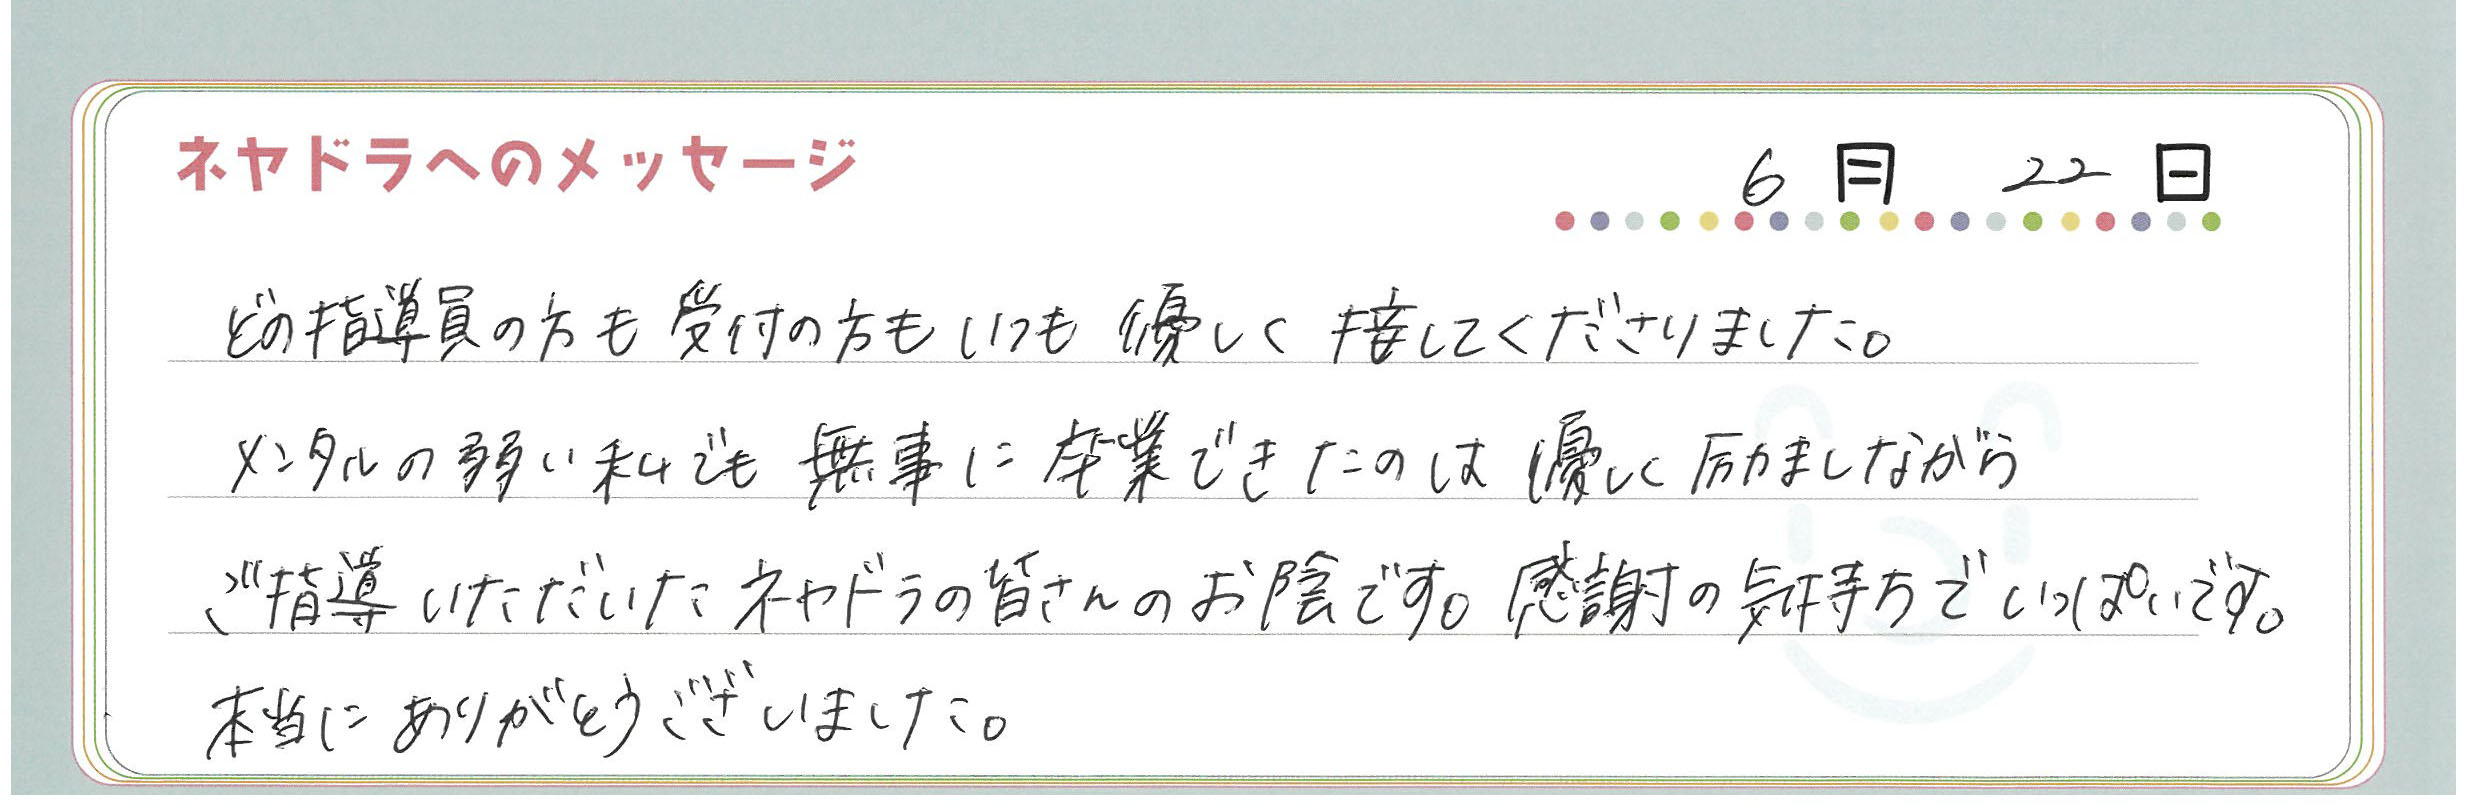 ネヤドラへのメッセージ
6月 22日
どの指導員の方も受付の方もいつも優しく接してくださりました。
メンタルの弱い私でも無事に卒業できたのは優しく励ましながら
ご指導いただいたネヤドラの皆さんのお陰です。感謝の気持ちでいっぱいです。
本当にありがとうございました。